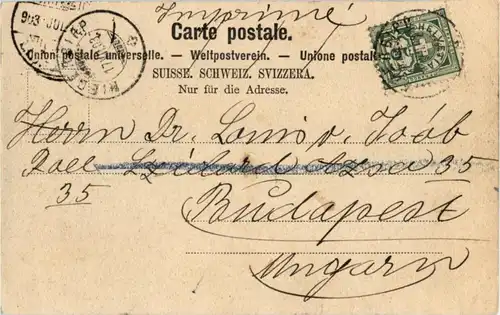 Imprimé
Carte postale.
Union postale universelle. — Weltpostverein. — Unione postale
SUISSE. SCHWEIZ. SVIZZERA.
Nur für die Adresse.
Herrn Dr. Louis v. Joób
35
35
Budapest
Ungarn